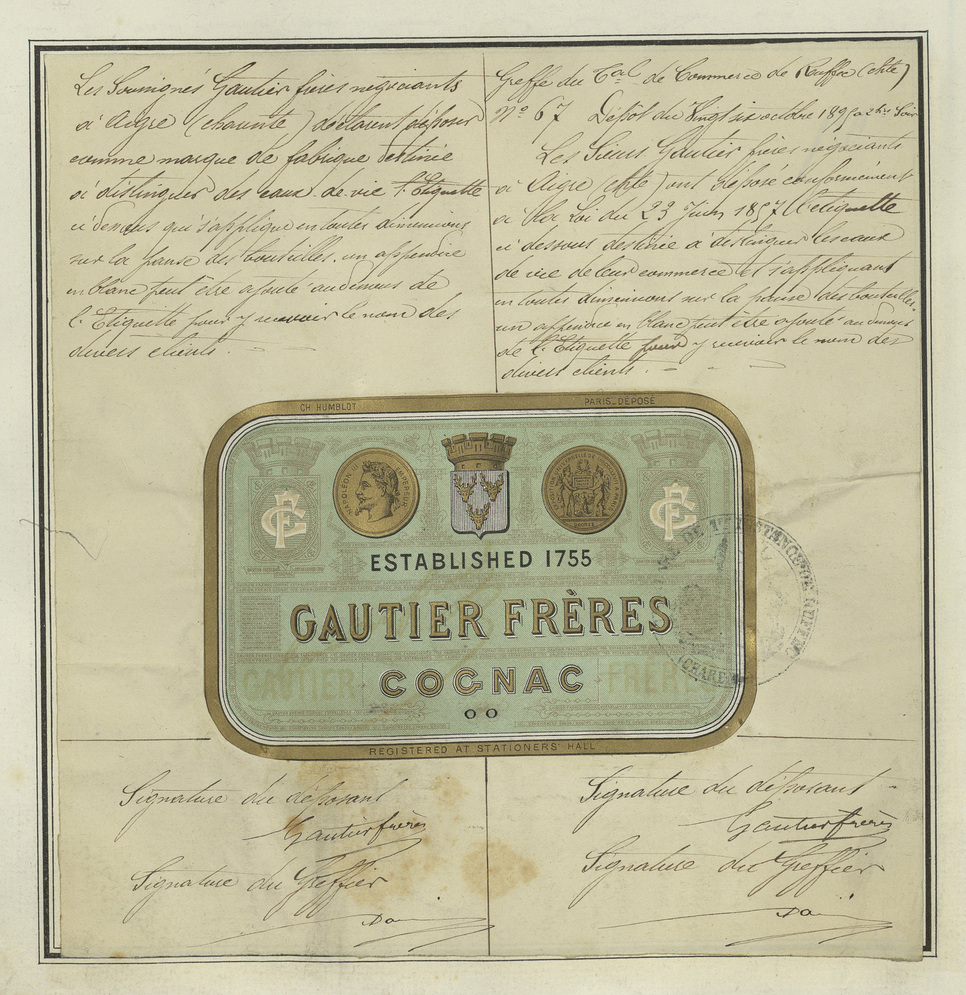 Les Soussignés Gautier frères négociants
à Aigre (charente) déclarent déposer
comme marque de fabrique destinée
à distinguer des eaux-de-vie l'Etiquette
ci dessous qui s'applique en toutes dimensions
sur la panse des bouteilles. un appendice
en blanc peut être ajouté au dessus de
l'Etiquette pour y recevoir le nom des
divers clients.
Greffe du Cal de Commerce de Ruffec (chte)
No 67 Dépôt du Vingt six octobre 1890 2 hrs Soir
Les Sieurs Gautier frères négociants
à Aigre (chte) ont déposé conformément
à la Loi du 23 Juin 1857 l'etiquette
ci dessous destinée à distinguer les eaux
de vie de leur commerce et s'appliquant
en toutes dimensions sur la panse des bouteilles.
un appendice en blanc peut être ajouté au dessus
de l'Etiquette pour y recevoir le nom des
divers clients.
CH. HUMBLOT PARIS_DÉPOSÉ
NAPOLEON III EMPEREUR
ESTABLISHED 1755
GAUTIER FRÈRES
GAUTIER COGNAC FRÈR
OO
REGISTERED AT STATIONERS' HALL
DE 1RE INSTANCE DE RUFFEC
(CHAREN
Signature du déposant
Gautier frères
Signature du Greffier
Signature du déposant
Gautier frères
Signature du Greffier